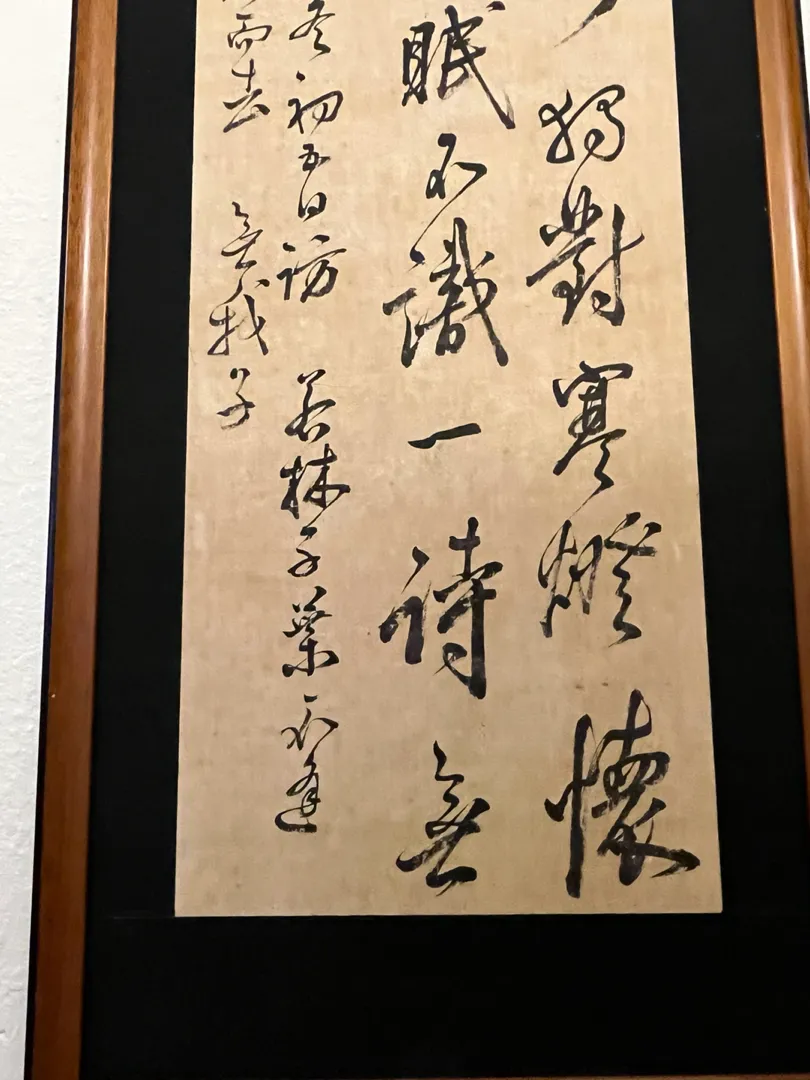 獨對寒燈懷
眠不識一詩無
冬初五日訪 若林子不逢
而去 無我子